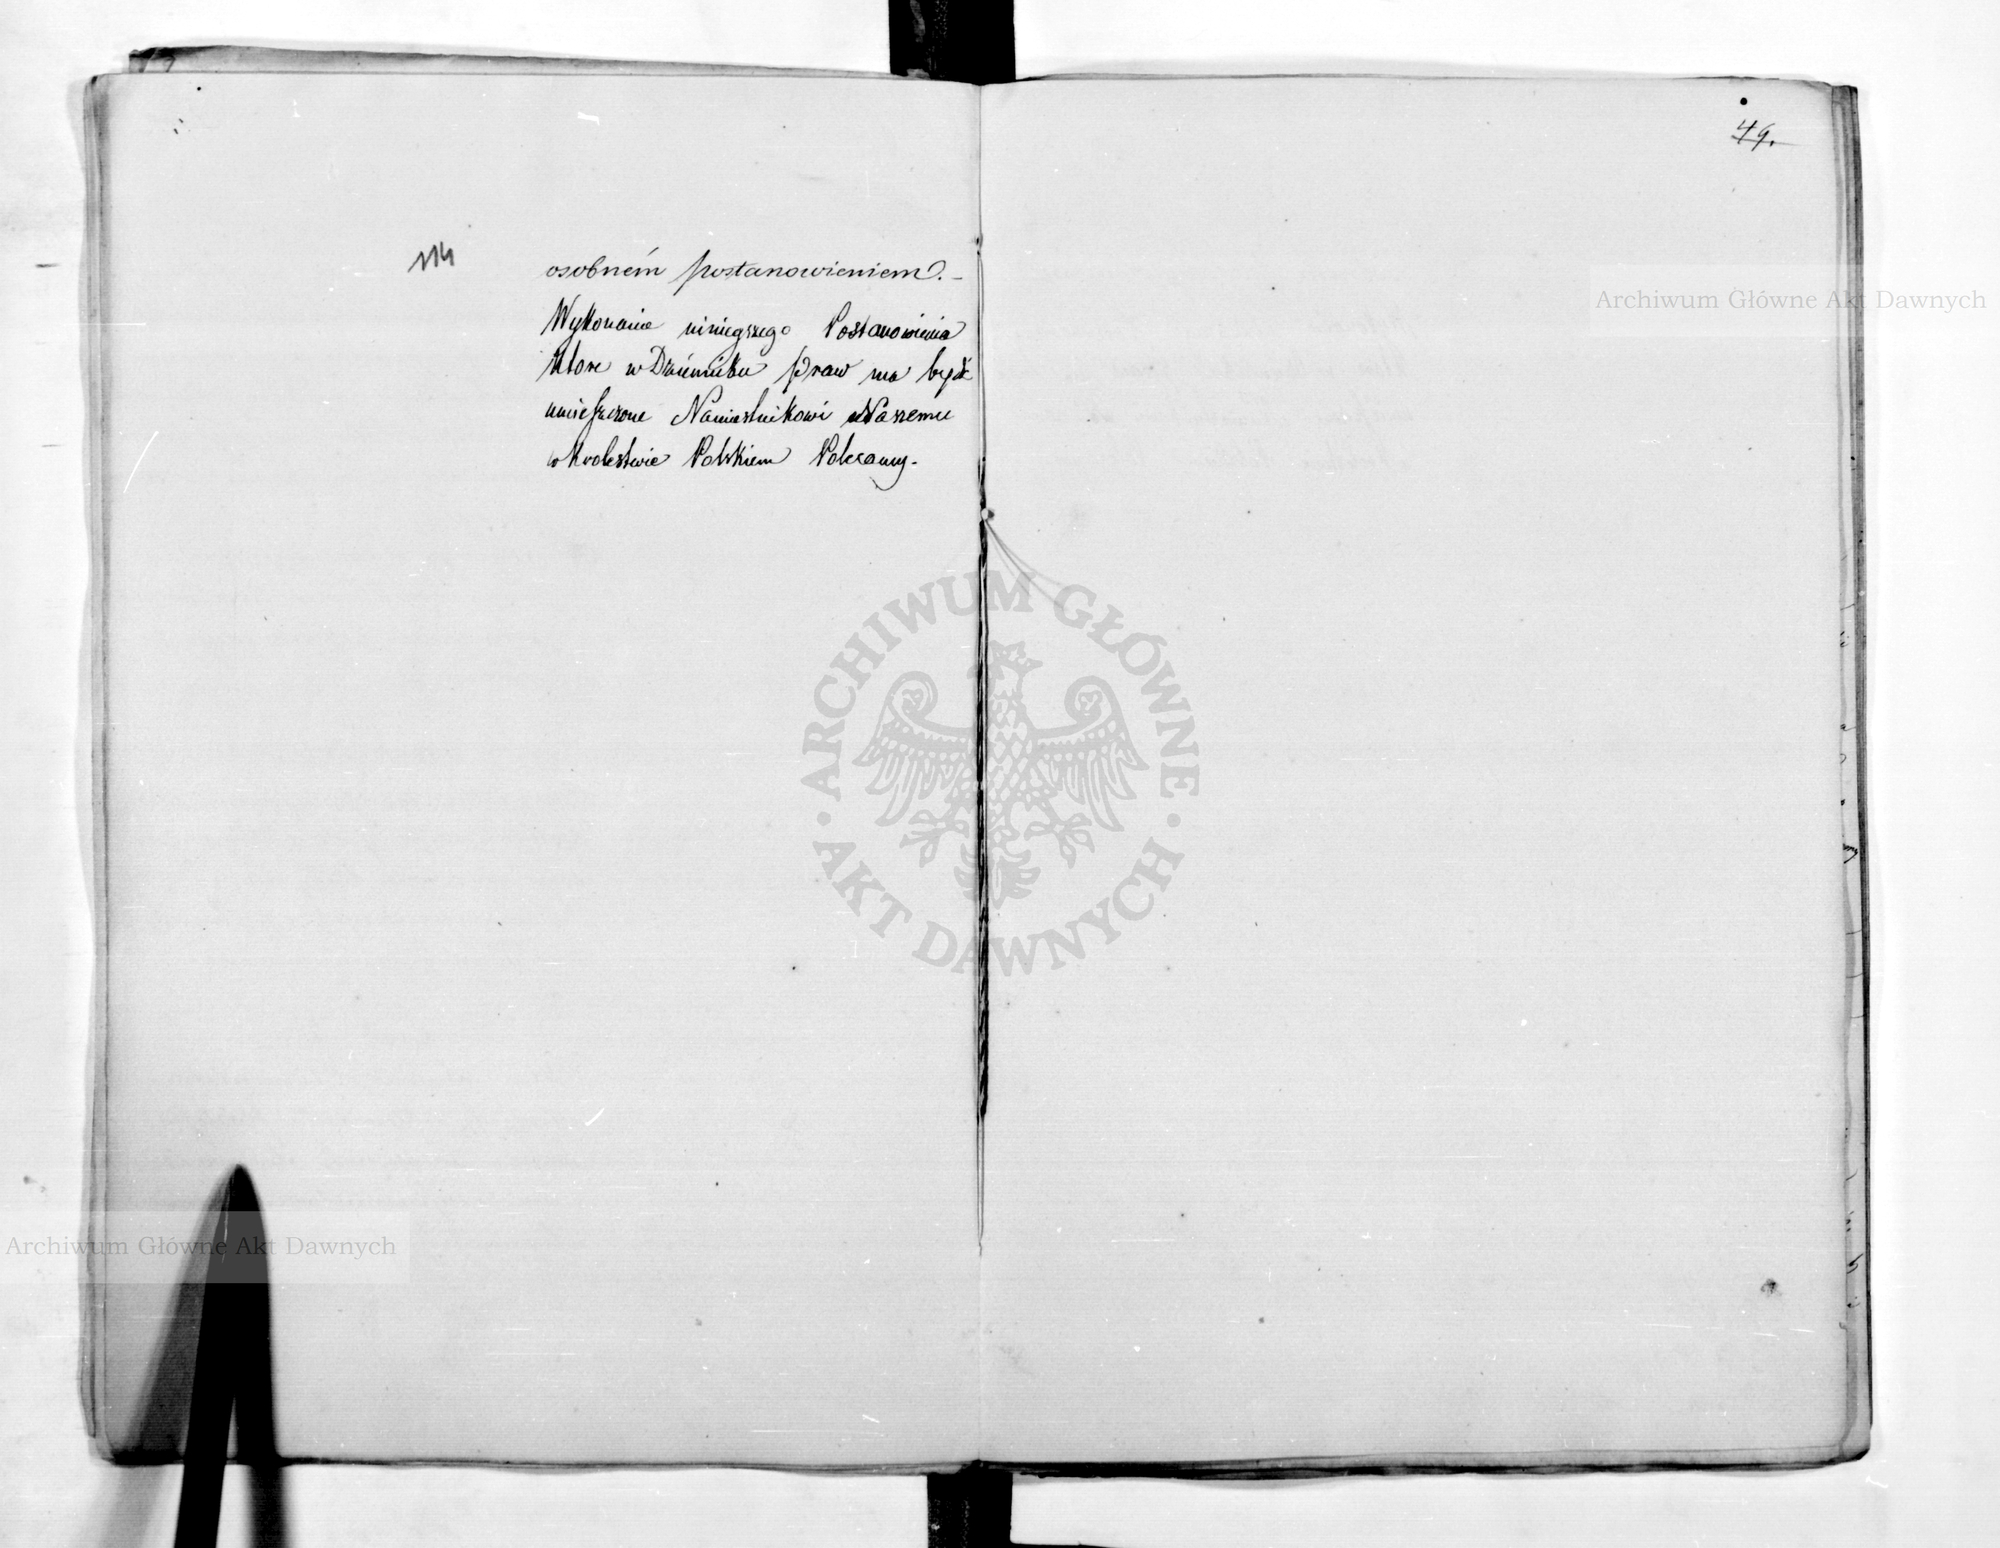 114
osobném postanowieniem. –
Wykonanie niniejszego Postanowienia
ktore w Dzienniku praw ma bydź
umieszczone Namiestnikowi Naszemu
w Krolestwie Polskiem Polecamy.
49.
Archiwum Główne Akt Dawnych
ARCHIWUM GŁÓWNE AKT DAWNYCH
Archiwum Główne Akt Dawnych